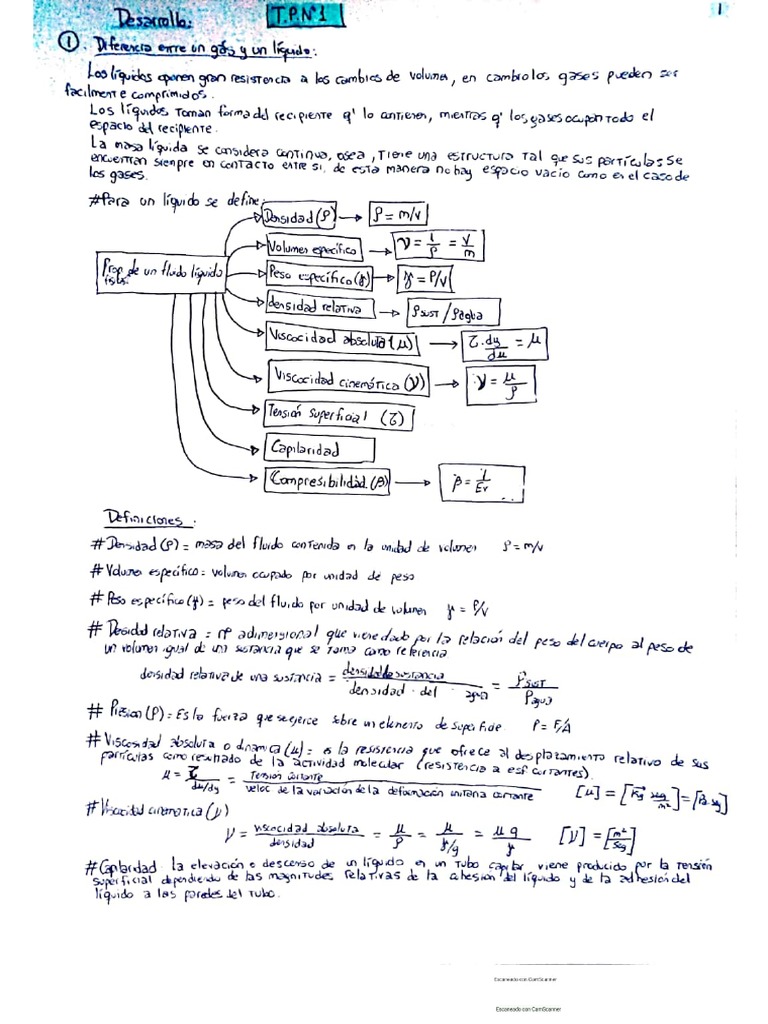 Desarrollo: T.P.Nº1 1
① Diferencia entre un gas y un líquido:
Los líquidos oponen gran resistencia a los cambios de volumen, en cambio los gases pueden ser
facilmente comprimidos.
Los líquidos toman forma del recipiente q' lo contienen, mientras q' los gases ocupan todo el
espacio del recipiente.
La masa líquida se considera continua, osea, tiene una estructura tal que sus partículas se
encuentran siempre en contacto entre si, de esta manera no hay espacio vacio como en el caso de
los gases.
#Para un líquido se define:
Densidad (ρ) → ρ = m/v
Volumen específico → ν = 1/ρ = V/m
Prop. de un fluido líquido
Peso específico (γ) → γ = P/V
densidad relativa → ρ SUST / ρ agua
Viscocidad absoluta (μ) → τ.dy/du = μ
Viscocidad cinemática (ν) → ν = μ/ρ
Tensión Superficial (τ)
Capilaridad
Compresibilidad (β) → β = 1/Ev
Definiciones.
# Densidad (ρ) = masa del fluido contenida en la unidad de volumen ρ = m/v
# Volumen especifico = volumen ocupado por unidad de peso
# Peso especifico (γ) = peso del fluido por unidad de volumen γ = P/V
# Densidad relativa = nº adimensional que viene dado por la relación del peso del cuerpo al peso de
un volumen igual de una sustancia que se toma como referencia
densidad relativa de una sustancia = densidad de sustancia / densidad del agua = ρ SUST / ρ agua
# Presion (P) = Es la fuerza que se ejerce sobre un elemento de superficie. P = F/A
# Viscosidad absoluta o dinamica (μ) = es la resistencia que ofrece al desplazamiento relativo de sus
partículas como resultado de la actividad molecular (resistencia a esf cortantes).
μ = τ / du/dy = Tensión cortante / veloc de la variación de la deformación unitaria cortante [μ] = [Kg seg/m²] = [P. sg]
# Viscocidad cinematica (ν)
ν = viscocidad absoluta / densidad = μ/ρ = μ / γ/g = μ g / γ [ν] = [m²/seg]
#Capilaridad la elevación o descenso de un líquido en un tubo capilar viene producido por la tensión
superficial dependiendo de las magnitudes relativas de la cohesion del líquido y de la adhesión del
líquido a las paredes del tubo.
Escaneado con CamScanner
Escaneado con CamScanner